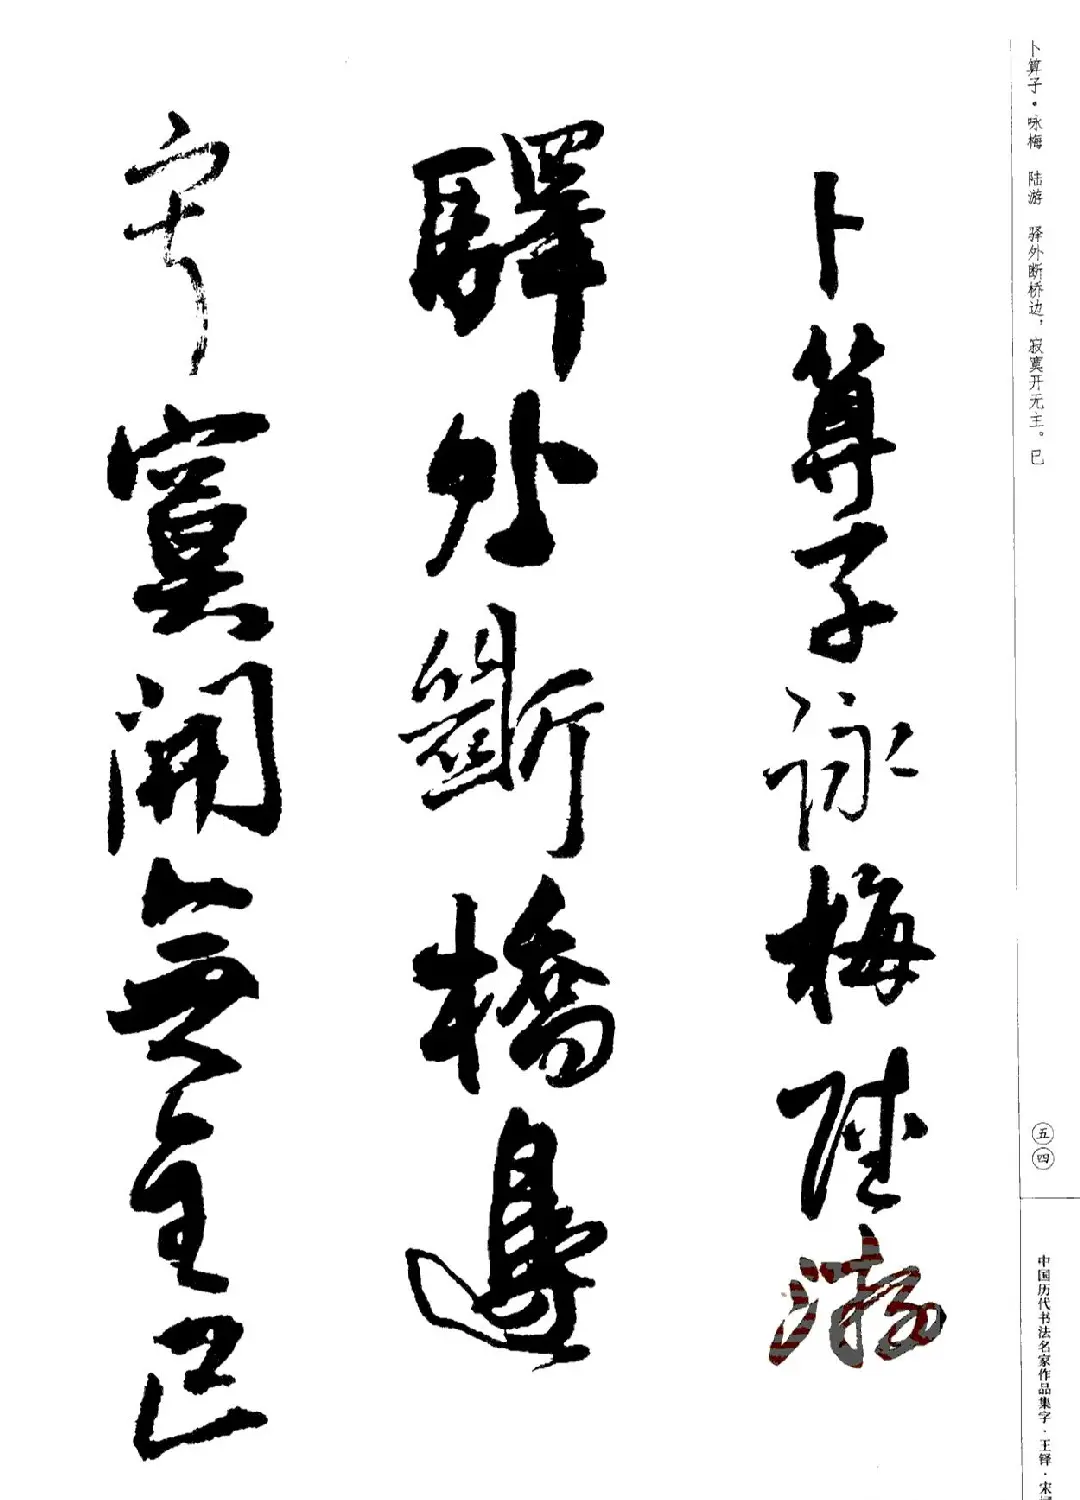 卜算子·咏梅 陆游 驿外断桥边，寂寞开无主。已
卜算子詠梅陸游
驛外斷橋邊
寂寞開無主已
五四
中国历代书法名家作品集字·王铎·宋词